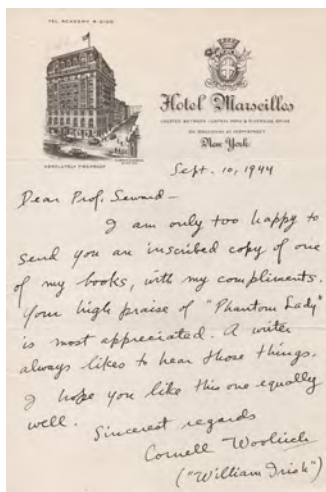 TEL. ACADEMY 2-2100
Hotel Marseilles
LOCATED BETWEEN CENTRAL PARK & RIVERSIDE DRIVE
ON BROADWAY AT 103RD STREET
New York
ABSOLUTELY FIREPROOF
Sept. 10, 1944
Dear Prof. Seward—
I am only too happy to
send you an inscribed copy of one
of my books, with my compliments.
Your high praise of "Phantom Lady"
is most appreciated. A writer
always likes to hear those things.
I hope you like this one equally
well.
Sincerest regards
Cornell Woolrich
("William Irish")